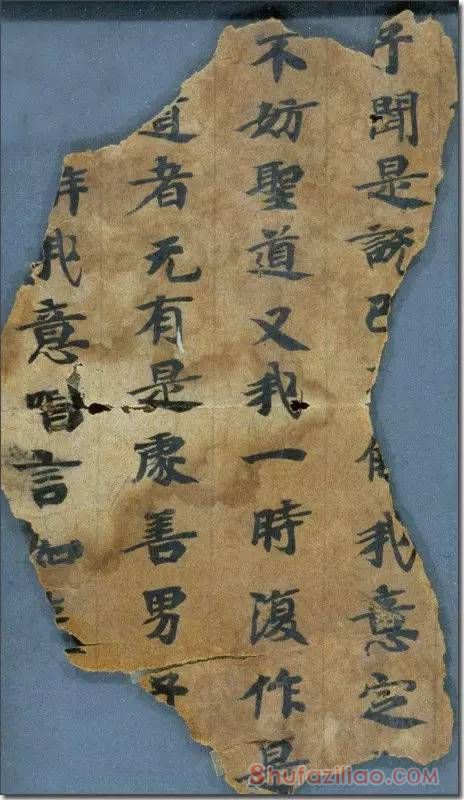 子聞是説已解我意定
不妨聖道又我一時復作是
道者无有是處善男子
解我意唱言如
Shufaziliao.com